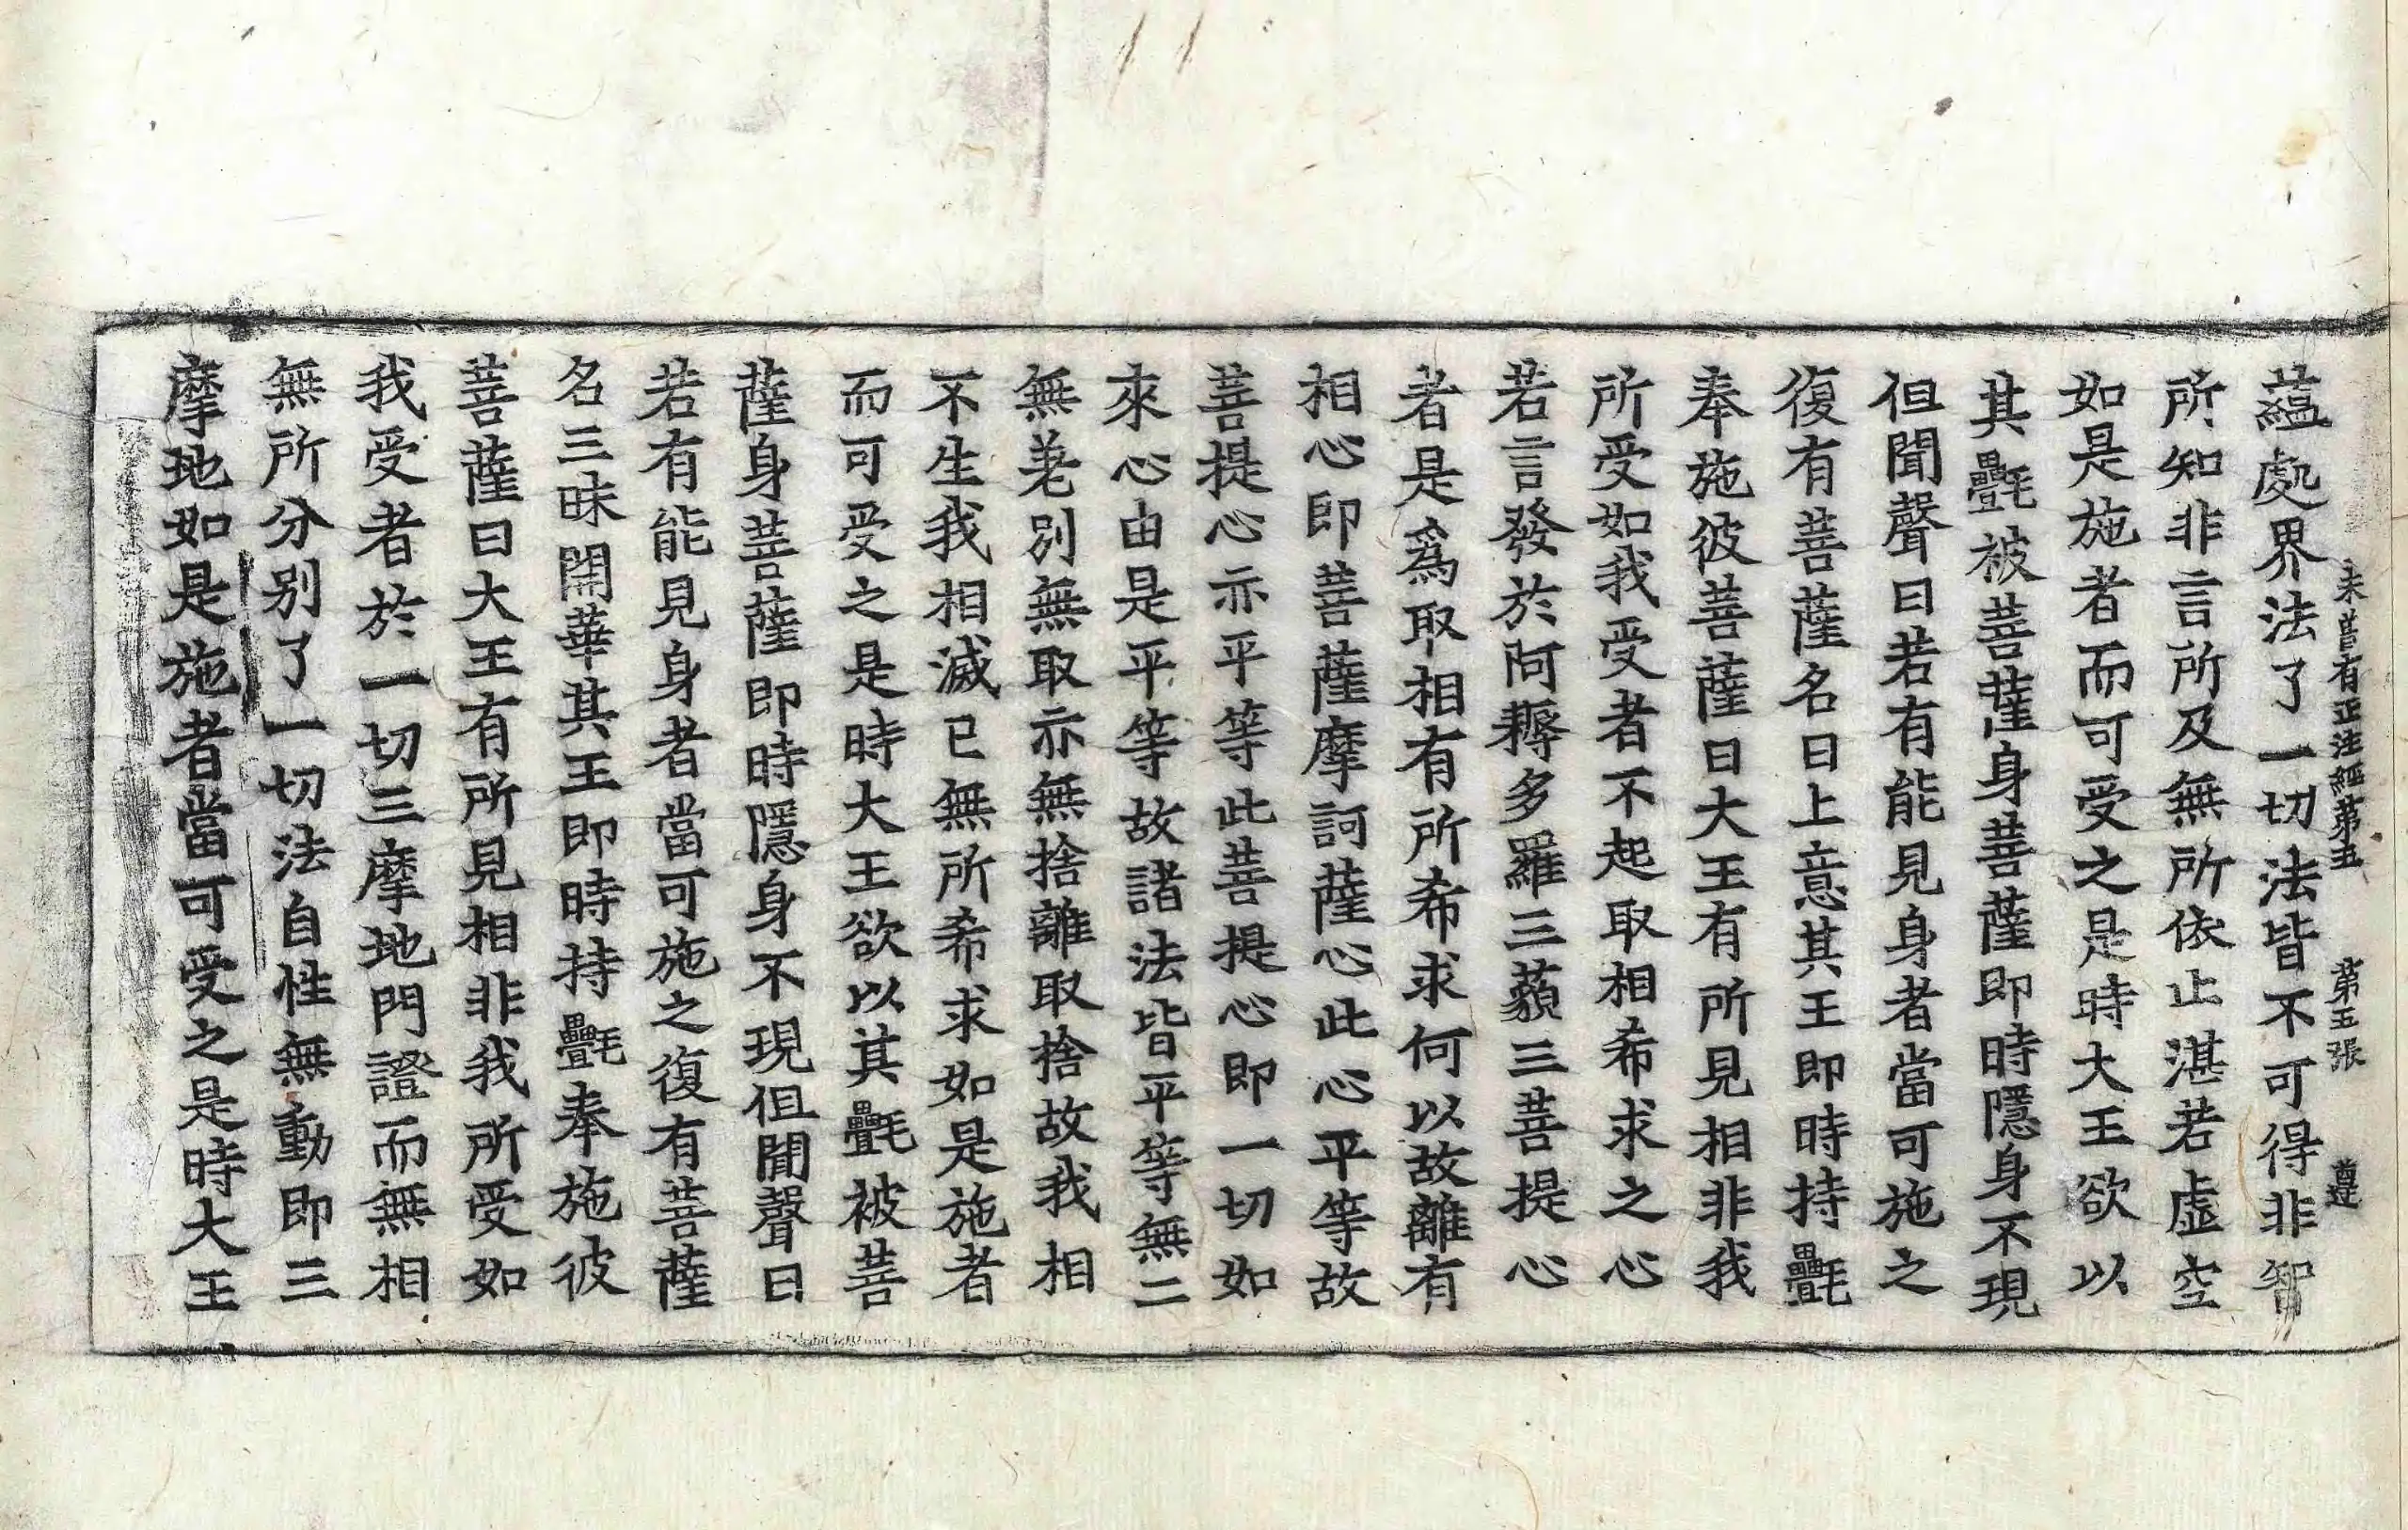 未曾有正法經第五 第五張 遵
蘊處界法了一切法皆不可得非智
所知非言所及無所依止湛若虛空
如是施者而可受之是時大王欲以
其㲲被菩薩身菩薩即時隱身不現
但聞聲曰若有能見身者當可施之
復有菩薩名曰上意其王即時持㲲
奉施彼菩薩曰大王有所見相非我
所受如我受者不起取相希求之心
若言發於阿耨多羅三藐三菩提心
者是爲取相有所希求何以故離有
相心即菩薩摩訶薩心此心平等故
菩提心亦平等此菩提心即一切如
來心由是平等故諸法皆平等無二
無差別無取亦無捨離取捨故我相
不生我相滅已無所希求如是施者
而可受之是時大王欲以其㲲被菩
薩身菩薩即時隱身不現但聞聲曰
若有能見身者當可施之復有菩薩
名三昧開華其王即時持㲲奉施彼
菩薩曰大王有所見相非我所受如
我受者於一切三摩地門證而無相
無所分別了一切法自性無動即三
摩地如是施者當可受之是時大王